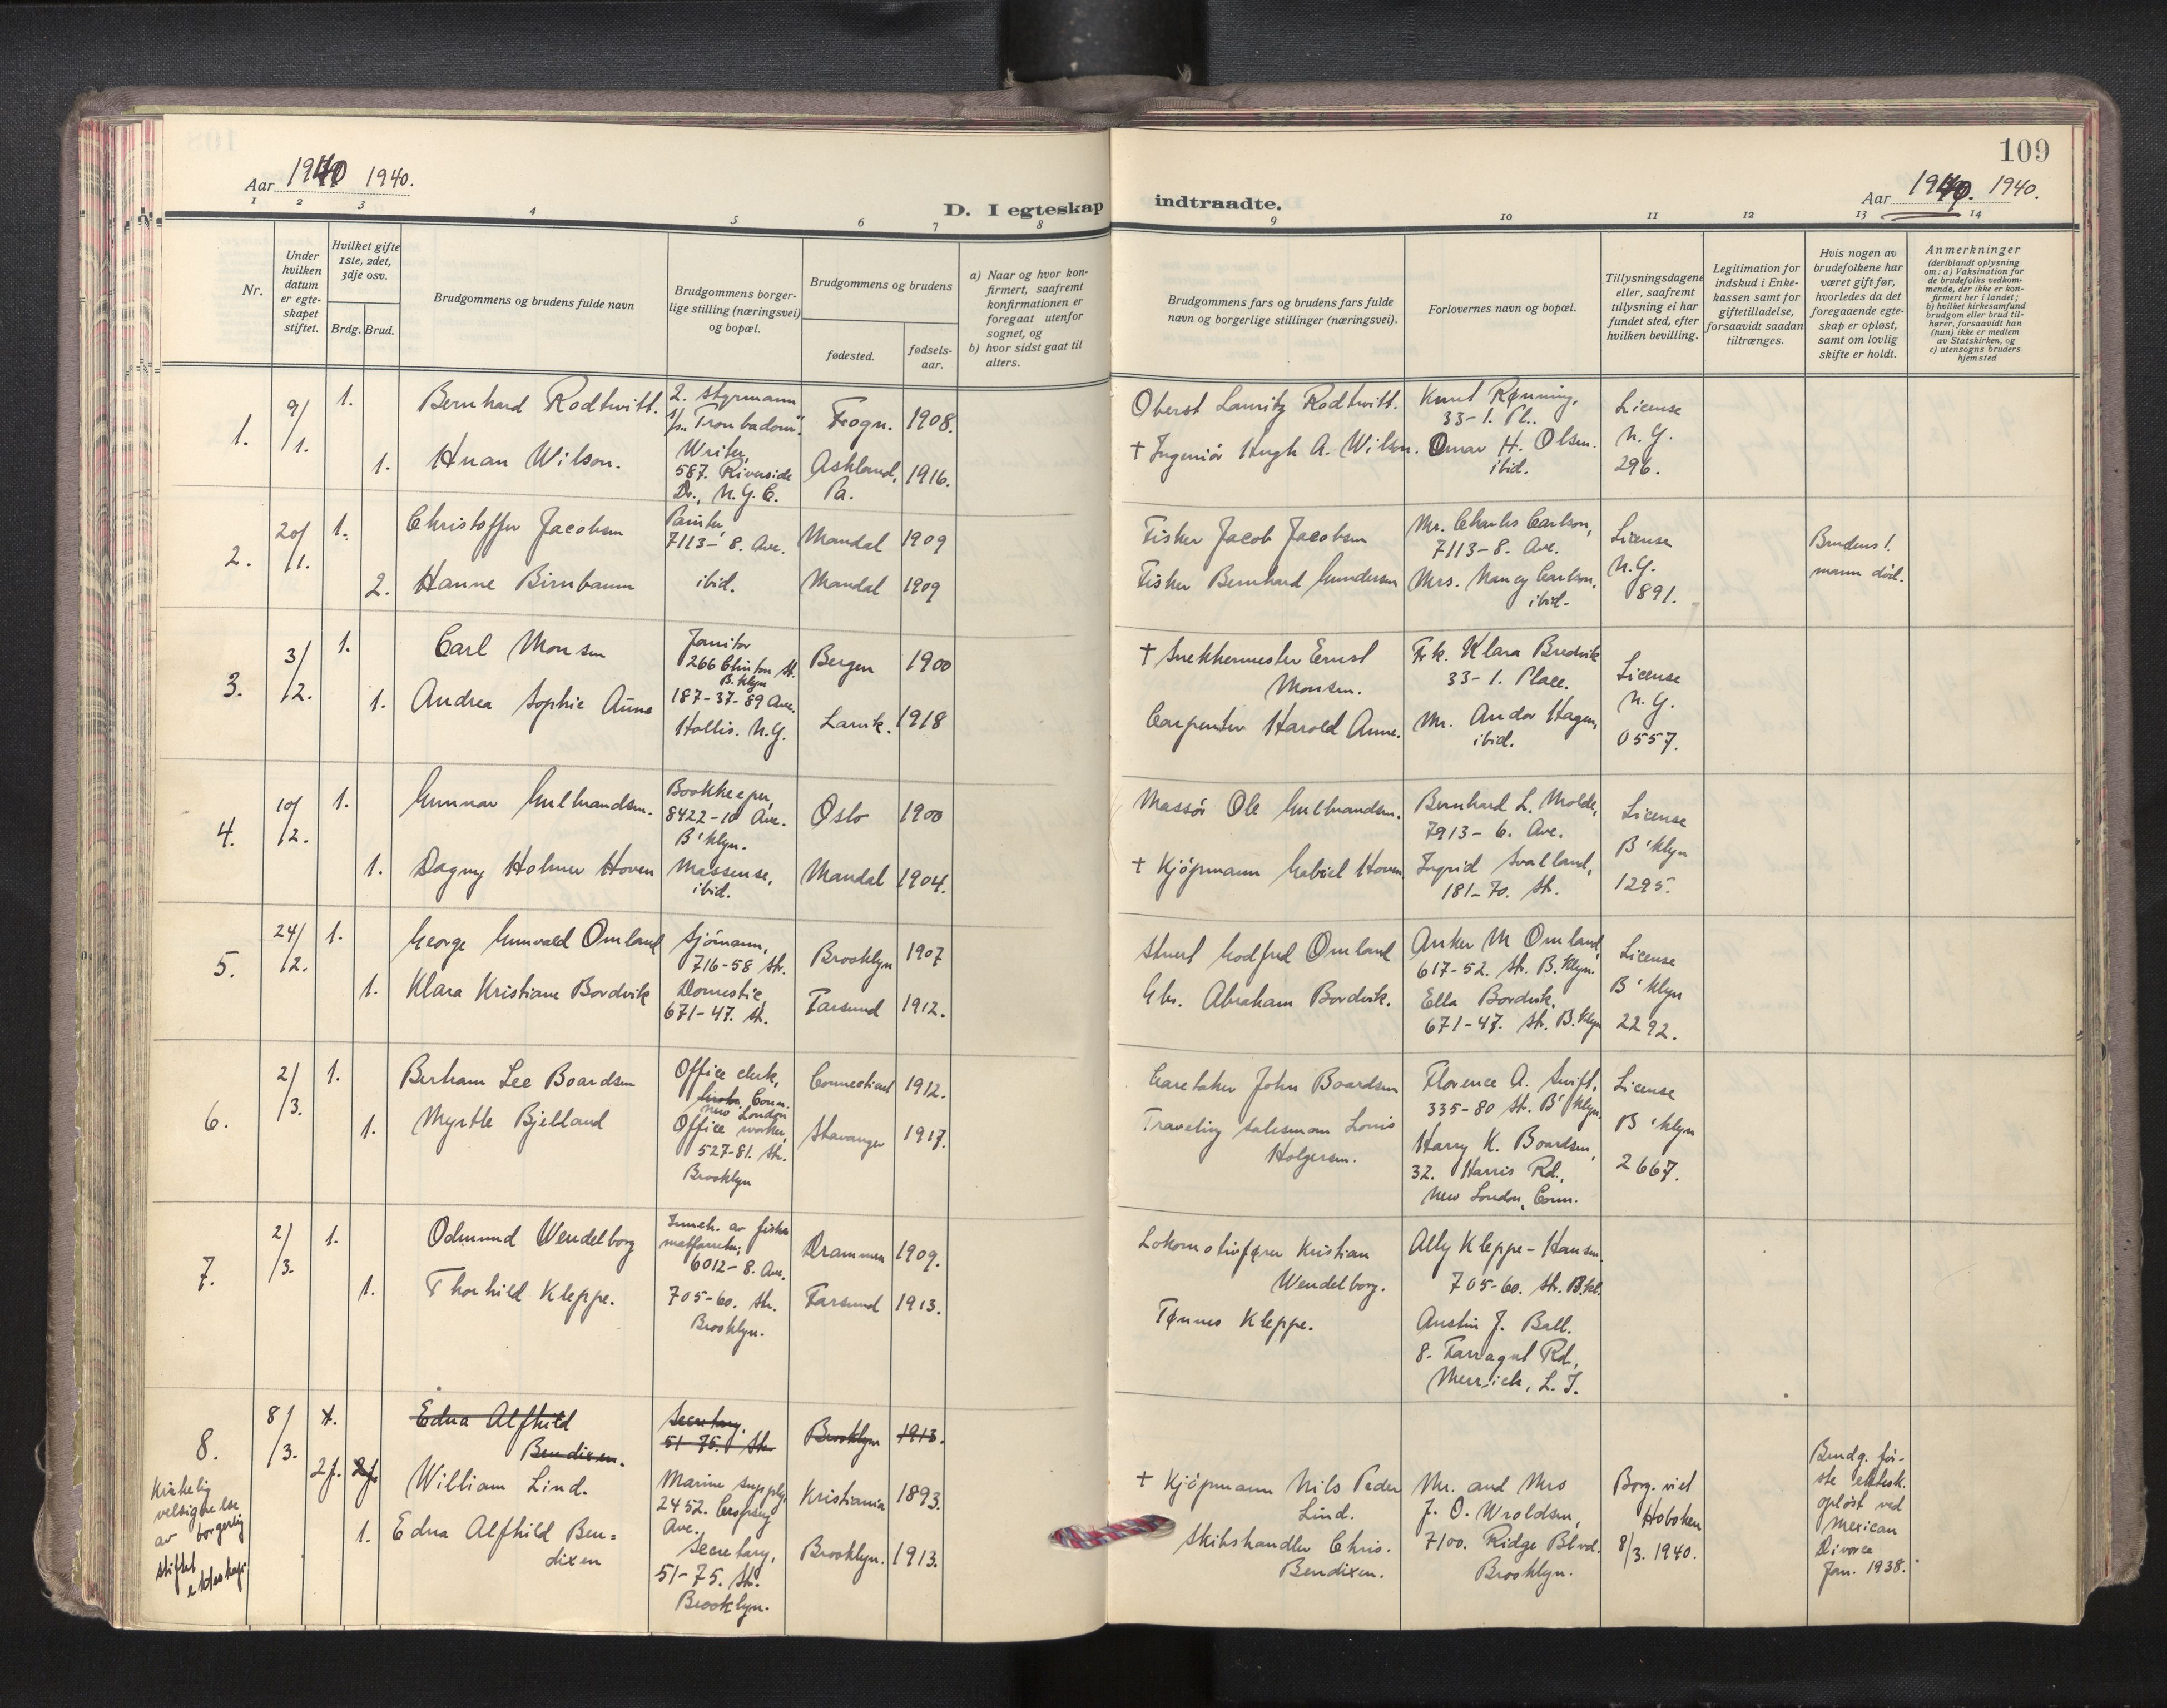 109
Aar 1940 1940.
Aar 1940. 1940.
D. I egteskap indtraadte.
1 2 3 4 5 6 7 8 9 10 11 12 13 14
Nr.
Under
hvilken
datum
er egte-
skapet
stiftet.
Hvilket gifte
1ste, 2det,
3dje osv.
Brdg. Brud.
Brudgommens og brudens fulde navn
Brudgommens borger-
lige stilling (næringsvei)
og bopæl.
Brudgommens og brudens
fødested.
fødsels-
aar.
a) Naar og hvor kon-
firmert, saafremt
konfirmationen er
foregaat utenfor
sognet, og
b) hvor sidst gaat til
alters.
Brudgommens fars og brudens fars fulde
navn og borgerlige stillinger (næringsvei).
Forlovernes navn og bopæl.
Tillysningsdagene
eller, saafremt
tillysning ei har
fundet sted, efter
hvilken bevilling.
Legitimation for
indskud i Enke-
kassen samt for
giftetilladelse,
forsaavidt saadan
tiltrænges.
Hvis nogen av
brudefolkene har
været gift før,
hvorledes da det
foregaaende egte-
skap er opløst,
samt om lovlig
skifte er holdt.
Anmerkninger
(deriblandt oplysning
om: a) Vaksination for
de brudefolks vedkom-
mende, der ikke er kon-
firmert her i landet;
b) hvilket kirkesamfund
brudgom eller brud til-
hører, forsaavidt han
(hun) ikke er medlem
av Statskirken, og
c) utensogns bruders
hjemsted
1.
9/
/1.
1.
Bernhard Rodtwitt.
2. styrmann
s/m "Troubadour".
Frogn. 1908.
1.
Huan Wilson.
Writer,
587. Riverside
Dr., N.Y.C.
Ashland,
Pa.
1916.
Oberst Lauritz Rodtwitt.
† Ingeniör Hugh A. Wilson.
Knut Rønning,
33-1. Pl..
Omar H. Olsen.
ibid.
License
N.Y.
296.
2.
20/
/1.
1.
Christoffer Jacobsen
Painter,
7113-8. Ave.
Mandal 1909
2.
Hanne Birnbaum
ibid.
Mandal 1909
Fisker Jacob Jacobsen
Fisker Bernhard Gundersen
Mr. Charles Carlson,
7113-8. Ave.
Mrs. Nancy Carlson,
ibid.
License
N.Y.
891.
Brudens 1.
mann död.
3.
3/
/2.
1.
Carl Monsen
Janitor
266 Clinton St.
B.klyn
Bergen 1900
1.
Andrea Sophie Aune
187-37-89 Ave.
Hollis. N.Y.
Larvik. 1918
† Snekkermester Ernst
Monsen.
Carpenter Harold Aune.
Frk. Klara Bredvik
33-1. Place.
Mr. Andor Hagen,
ibid.
License
N.Y.
0557.
4.
10/
/2.
1.
Gunnar Gulbrandsen.
Bookkeeper,
8422-10 Ave.
B'klyn.
Oslo 1900
1.
Dagny Holmer Hoven
Massense,
ibid.
Mandal 1904.
Massör Ole Gulbrandsen.
† Kjöpmann Gabriel Hoven.
Bernhard L. Molde,
7913-6. Ave.
Ingrid Svalland,
181-70. St.
License
B'klyn
1295.
5.
24/
/2.
1.
George Gunvald Omland
Sjömann,
716-58 St.
Brooklyn 1907
1.
Klara Kristiane Bordvik
Domestic,
671-47. St.
Farsund 1912.
Stuert Godfred Omland
Gbr. Abraham Bordvik.
Anker M Omland,
617-52. St. B.klyn.
Ella Bordvik,
671-47. St. B.klyn
License
B'klyn
2292.
6.
2/
/3.
1.
Bertram Lee Boardsen
Office clerk,
Conn.
New London
Connecticut 1912.
1.
Myrtle Bjelland
Office worker,
527-81. St.
Brooklyn
Stavanger 1917.
Caretaker John Boardsen
Traveling salesman Louis
Holgersen.
Florence A. Swift.
335-80 St. B'klyn.
Harry K. Boardsen,
32. Harris Rd.,
New London, Conn.
License
B'klyn
2667.
7.
2/
/3.
1.
Odmund Wendelborg
Inneh. av fiske
matforretn.;
6012-8. Ave.
Drammen 1909.
1.
Thorhild Kleppe.
705-60. St.
Brooklyn.
Farsund 1913.
Lokomotivfører Kristian
Wendelborg.
Tønnes Kleppe.
Ally Kleppe-Hansen
705-60. St. B.kl.
Austin J. Ball.
8. Farragut Rd,
Merrick, L.I.
8.
8/
/3.
1.
Edna Alfhild
Bendixen.
Secretary,
51-75. St.
Brooklyn 1913.
Kirkelig
velsignelse
av borgerlig
stiftet
ekteskap.
2f. 2f.
William Lind.
Marine supply,
2452. Cropsey
Ave.
Kristiania 1893.
1.
Edna Alfhild Ben=
dixen
Secretary,
51-75. St.
Brooklyn.
Brooklyn. 1913.
† Kjöpmann Nils Peder
Lind.
Skibshandler Chris.
Bendixen.
Mr. and Mrs
J. O. Wroldsen,
7100. Ridge Blvd.
Brooklyn.
Borg. viet
Hoboken
8/3. 1940.
Brudg. för-
ste ektesk.
oplöst ved
Mexican
Divorce
Jan. 1938.